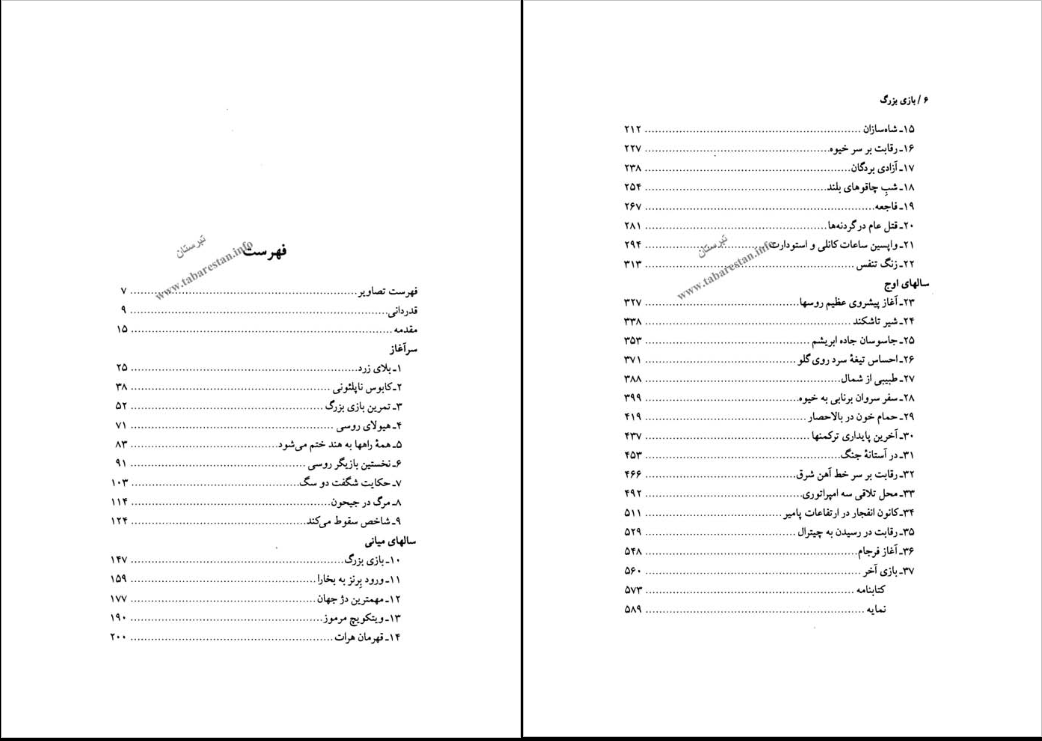 فهرست
تبرستان
www.tabarestan.info
فهرست تصاویر ........ ۷
قدردانی ........ ۹
مقدمه ........ ۱۵
سرآغاز
۱ـ بلای زرد ........ ۲۵
۲ـ کابوس ناپلئونی ........ ۳۸
۳ـ تمرین بازی بزرگ ........ ۵۲
۴ـ هیولای روسی ........ ۷۱
۵ـ همهٔ راهها به هند ختم می‌شود ........ ۸۳
۶ـ نخستین بازیگر روسی ........ ۹۱
۷ـ حکایت شگفت دو سگ ........ ۱۰۳
۸ـ مرگ در جیحون ........ ۱۱۴
۹ـ شاخص سقوط می‌کند ........ ۱۲۴
سالهای میانی
۱۰ـ بازی بزرگ ........ ۱۴۷
۱۱ـ ورود برنز به بخارا ........ ۱۵۹
۱۲ـ مهمترین دژ جهان ........ ۱۷۷
۱۳ـ ویتکویچ مرموز ........ ۱۹۰
۱۴ـ قهرمان هرات ........ ۲۰۰
۶ / بازی بزرگ
۱۵ـ شاه‌سازان ........ ۲۱۲
۱۶ـ رقابت بر سر خیوه ........ ۲۲۷
۱۷ـ آزادی بردگان ........ ۲۳۸
۱۸ـ شبِ چاقوهای بلند ........ ۲۵۴
۱۹ـ فاجعه ........ ۲۶۷
۲۰ـ قتل عام در گردنه‌ها ........ ۲۸۱
۲۱ـ واپسین ساعات کانلی و استودارت ........ ۲۹۴
تبرستان
www.tabarestan.info
۲۲ـ زنگ تنفس ........ ۳۱۳
سالهای اوج
۲۳ـ آغاز پیشروی عظیم روسها ........ ۳۲۷
۲۴ـ شیر تاشکند ........ ۳۳۸
۲۵ـ جاسوسان جاده ابریشم ........ ۳۵۳
۲۶ـ احساس تیغهٔ سرد روی گلو ........ ۳۷۱
۲۷ـ طبیبی از شمال ........ ۳۸۸
۲۸ـ سفر سروان برنابی به خیوه ........ ۳۹۹
۲۹ـ حمام خون در بالاحصار ........ ۴۱۹
۳۰ـ آخرین پایداری ترکمنها ........ ۴۳۷
۳۱ـ در آستانهٔ جنگ ........ ۴۵۳
۳۲ـ رقابت بر سر خط آهن شرق ........ ۴۶۶
۳۳ـ محل تلاقی سه امپراتوری ........ ۴۹۲
۳۴ـ کانون انفجار در ارتفاعات پامیر ........ ۵۱۱
۳۵ـ رقابت در رسیدن به چیترال ........ ۵۲۹
۳۶ـ آغاز فرجام ........ ۵۴۸
۳۷ـ بازی آخر ........ ۵۶۰
کتابنامه ........ ۵۷۳
نمایه ........ ۵۸۹